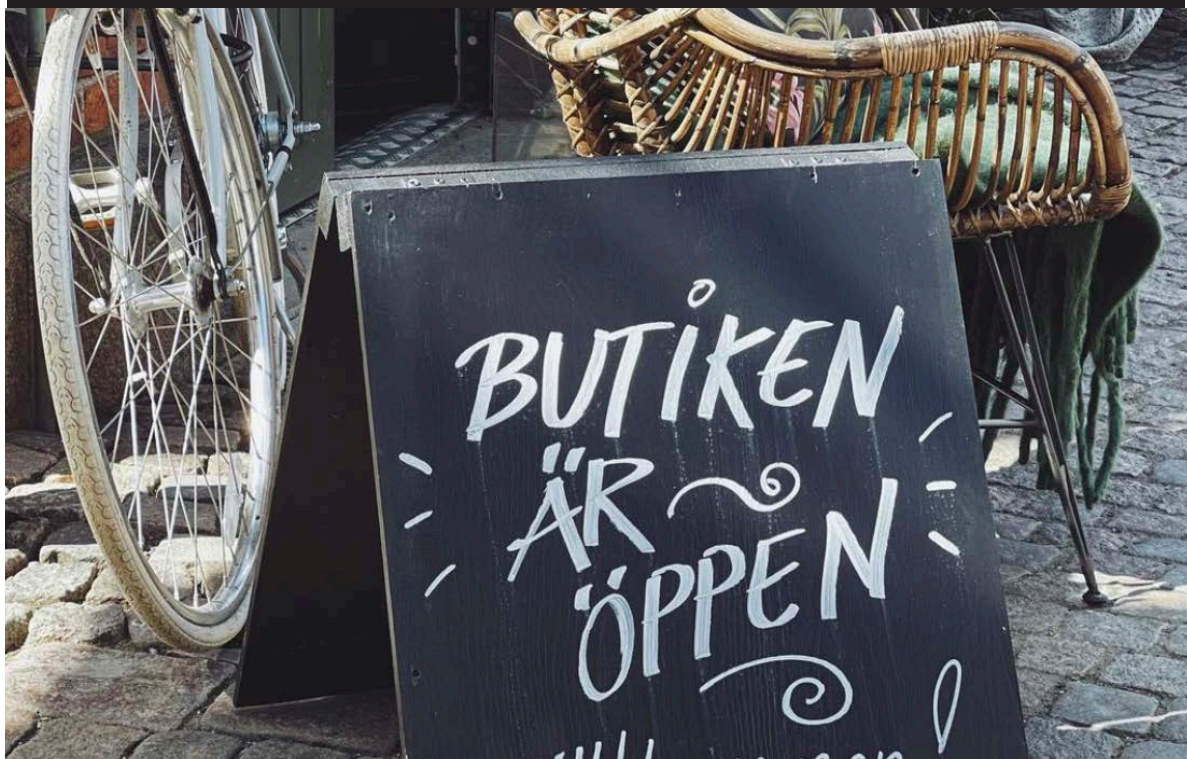 BUTIKEN
ÄR
ÖPPEN